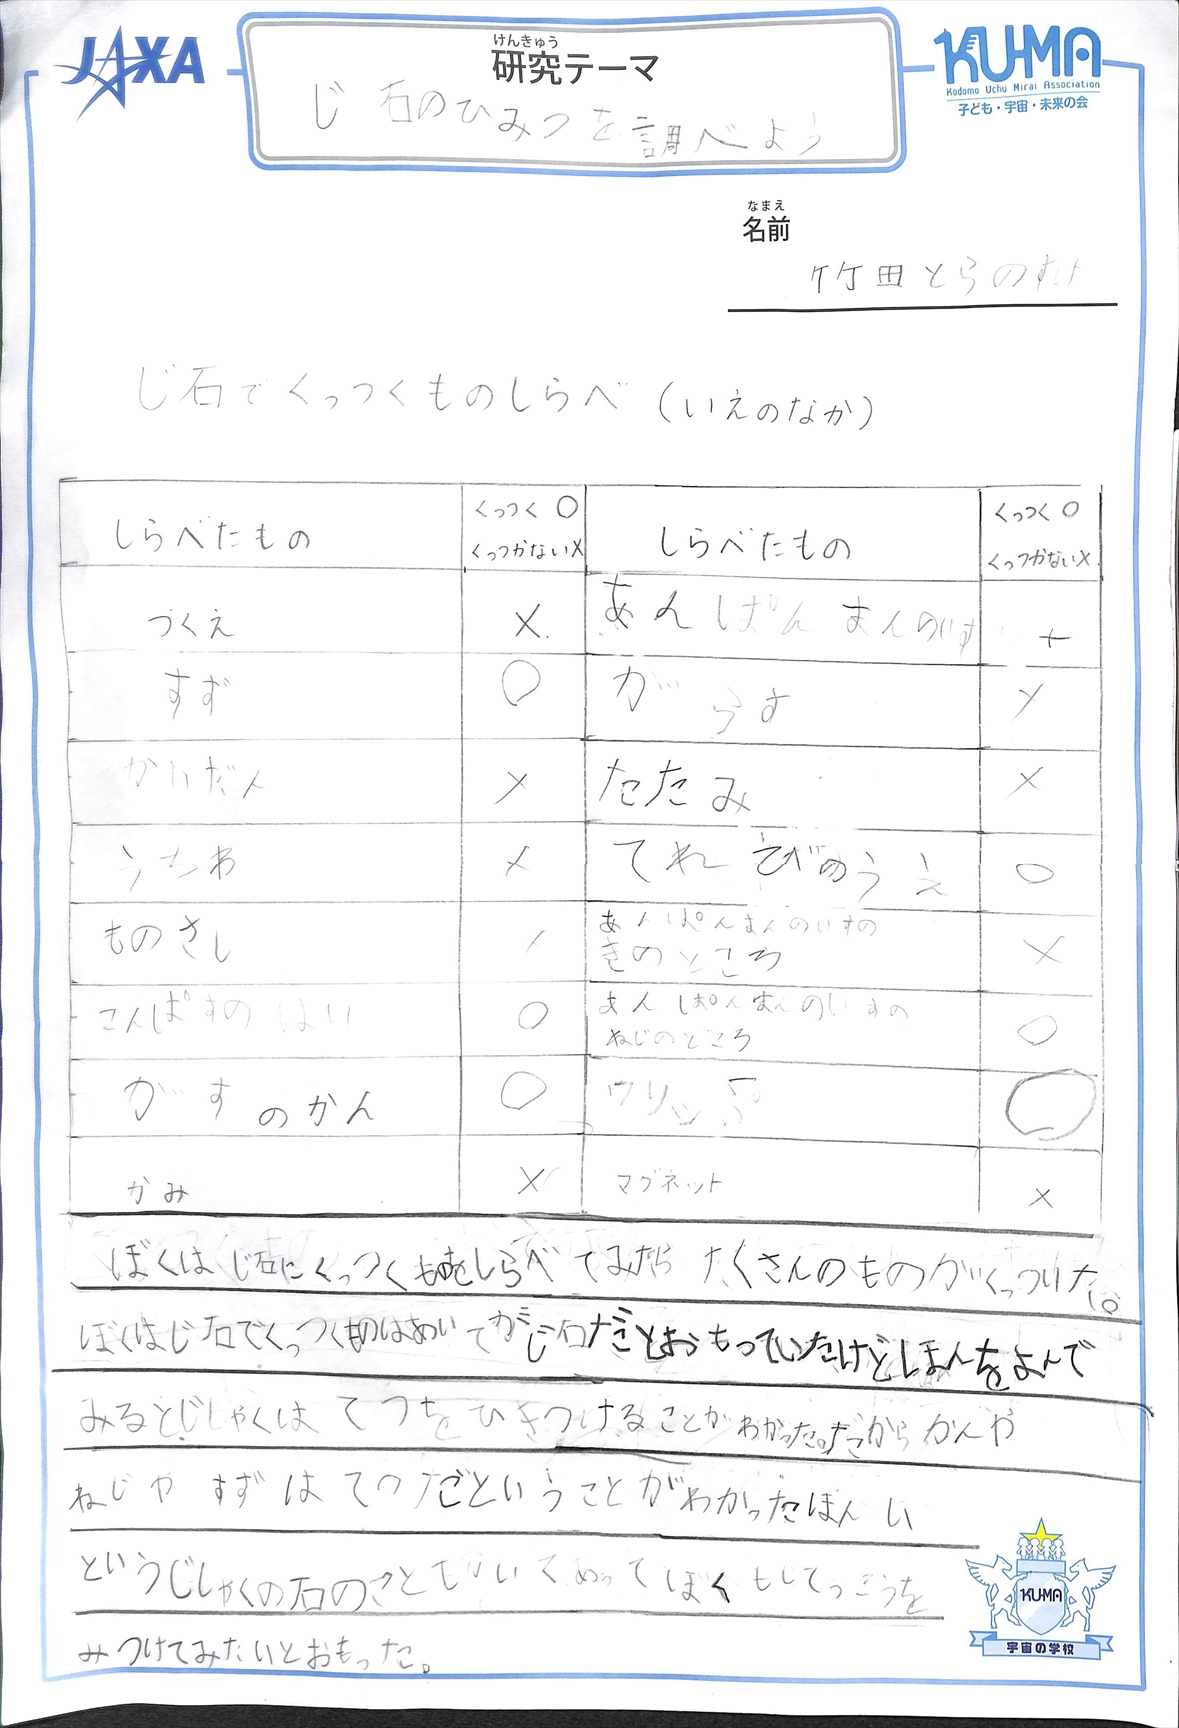 JAXA
けんきゅう
研究テーマ
じ石のひみつを調べよう
KU-MA
Kodomo Uchu Mirai Association
子ども・宇宙・未来の会
なまえ
名前
竹田とらのすけ
じ石でくっつくものしらべ(いえのなか)
しらべたもの くっつく○ くっつかない× しらべたもの くっつく○ くっつかない×
つくえ × あんぱんまんのいす ×
すず ○ がらす ×
かいだん × たたみ ×
うちわ × てれびのうえ ○
ものさし あんぱんまんのいすの きのところ ×
こんぱすのはり ○ あんぱんまんのいすの ねじのところ ○
がすのかん ○ クリップ ○
かみ × マグネット ×
ぼくはじ石にくっつくものをしらべてみたらたくさんのものがくっついた。
ぼくはじ石でくっつくものはあいてがじ石だとおもっていたけどほんをよんで
みるとじしゃくはてつをひきつけることがわかった。だからかんや
ねじやすずはてつだということがわかったほん
というじしゃくの石のことも てぼくも
みつけてみたいとおもった。
KU-MA
宇宙の学校